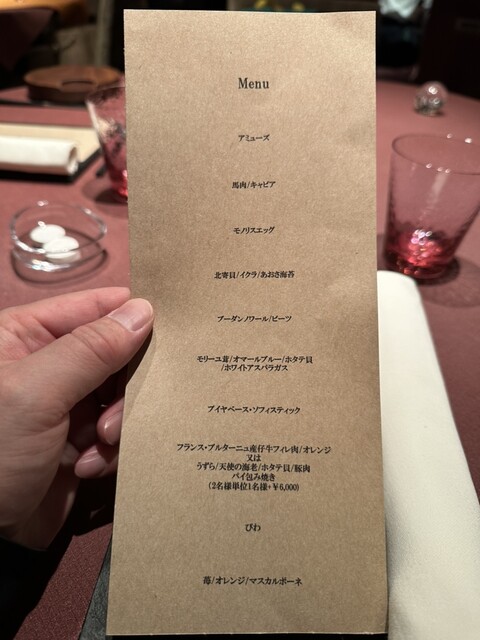 Menu
アミューズ
馬肉/キャビア
モノリスエッグ
北寄貝/イクラ/あおさ海苔
ブーダンノワール/ビーツ
モリーユ茸/オマールブルー/ホタテ貝
/ホワイトアスパラガス
ブイヤベース・ソフィスティック
フランス・ブルターニュ産仔牛フィレ肉/オレンジ
又は
うずら/天使の海老/ホタテ貝/豚肉
パイ包み焼き
(2名様単位1名様+¥6,000)
びわ
苺/オレンジ/マスカルポーネ